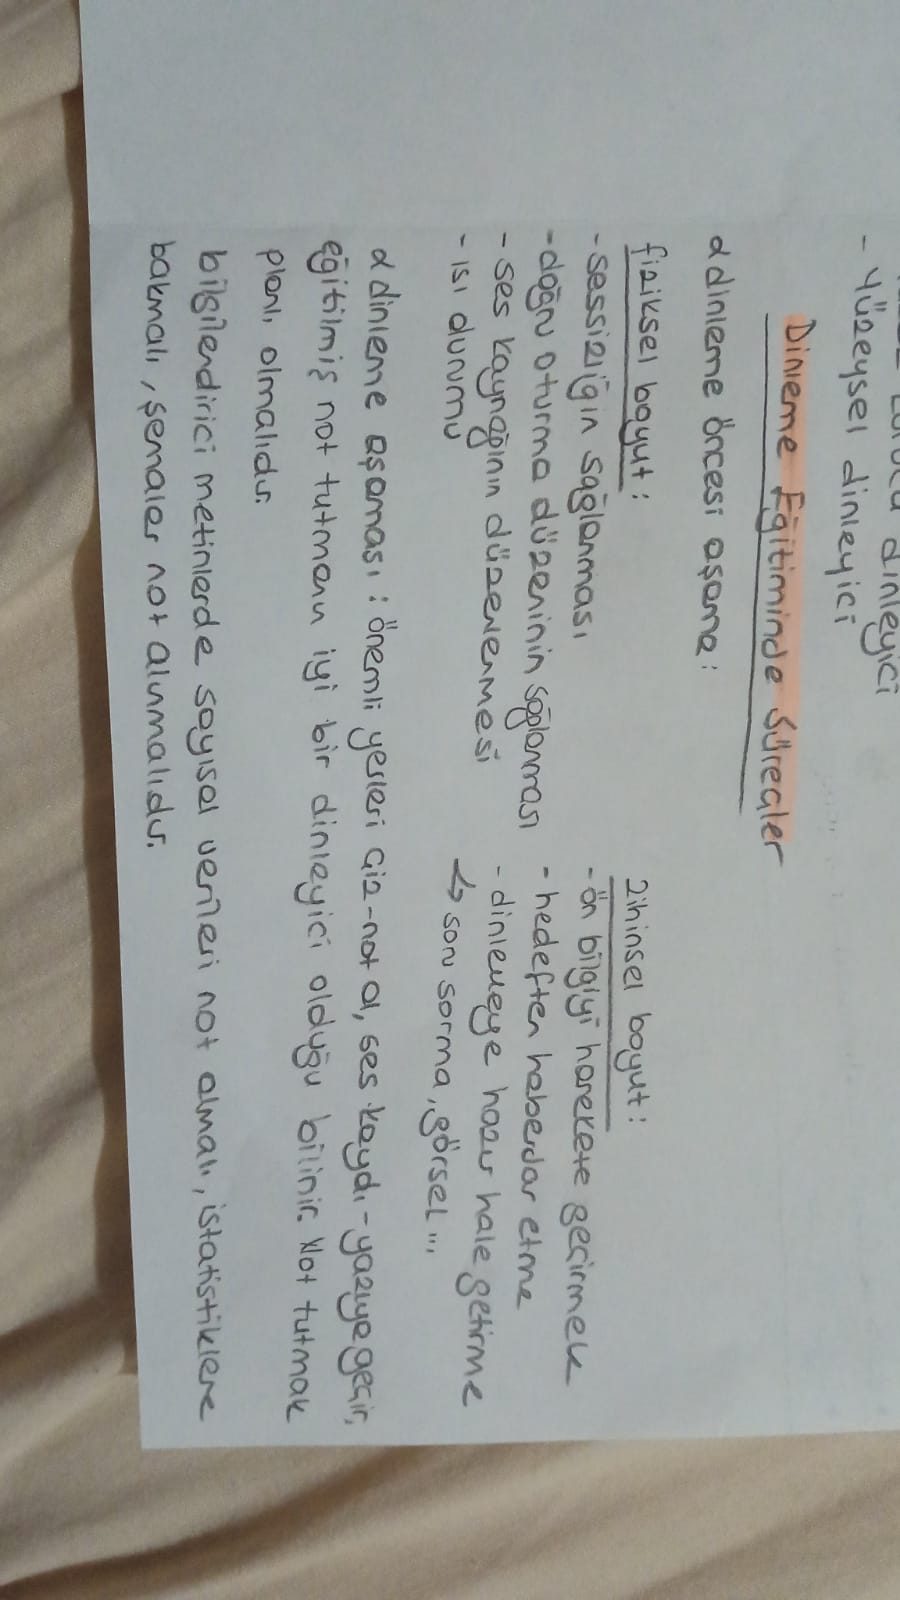 dinleyici
- Yüzeysel dinleyici
Dinleme Eğitiminde Süreçler
α dinleme öncesi aşama:
fiziksel boyut:
- sessizliğin sağlanması
- doğru oturma düzeninin sağlanması
- ses kaynağının düzenlenmesi
- ısı durumu
zihinsel boyut:
- ön bilgiyi harekete geçirmek
- hedeften haberdar etme
- dinlemeye hazır hale getirme
↳ soru sorma, görsel...
α dinleme aşaması: önemli yerleri çiz-not al, ses kaydı-yazıya geçir,
eğitilmiş not tutmanın iyi bir dinleyici olduğu bilinir. Not tutmak
planlı olmalıdır.
bilgilendirici metinlerde sayısal verileri not almalı, istatistiklere
bakmalı, şemalar not alınmalıdır.